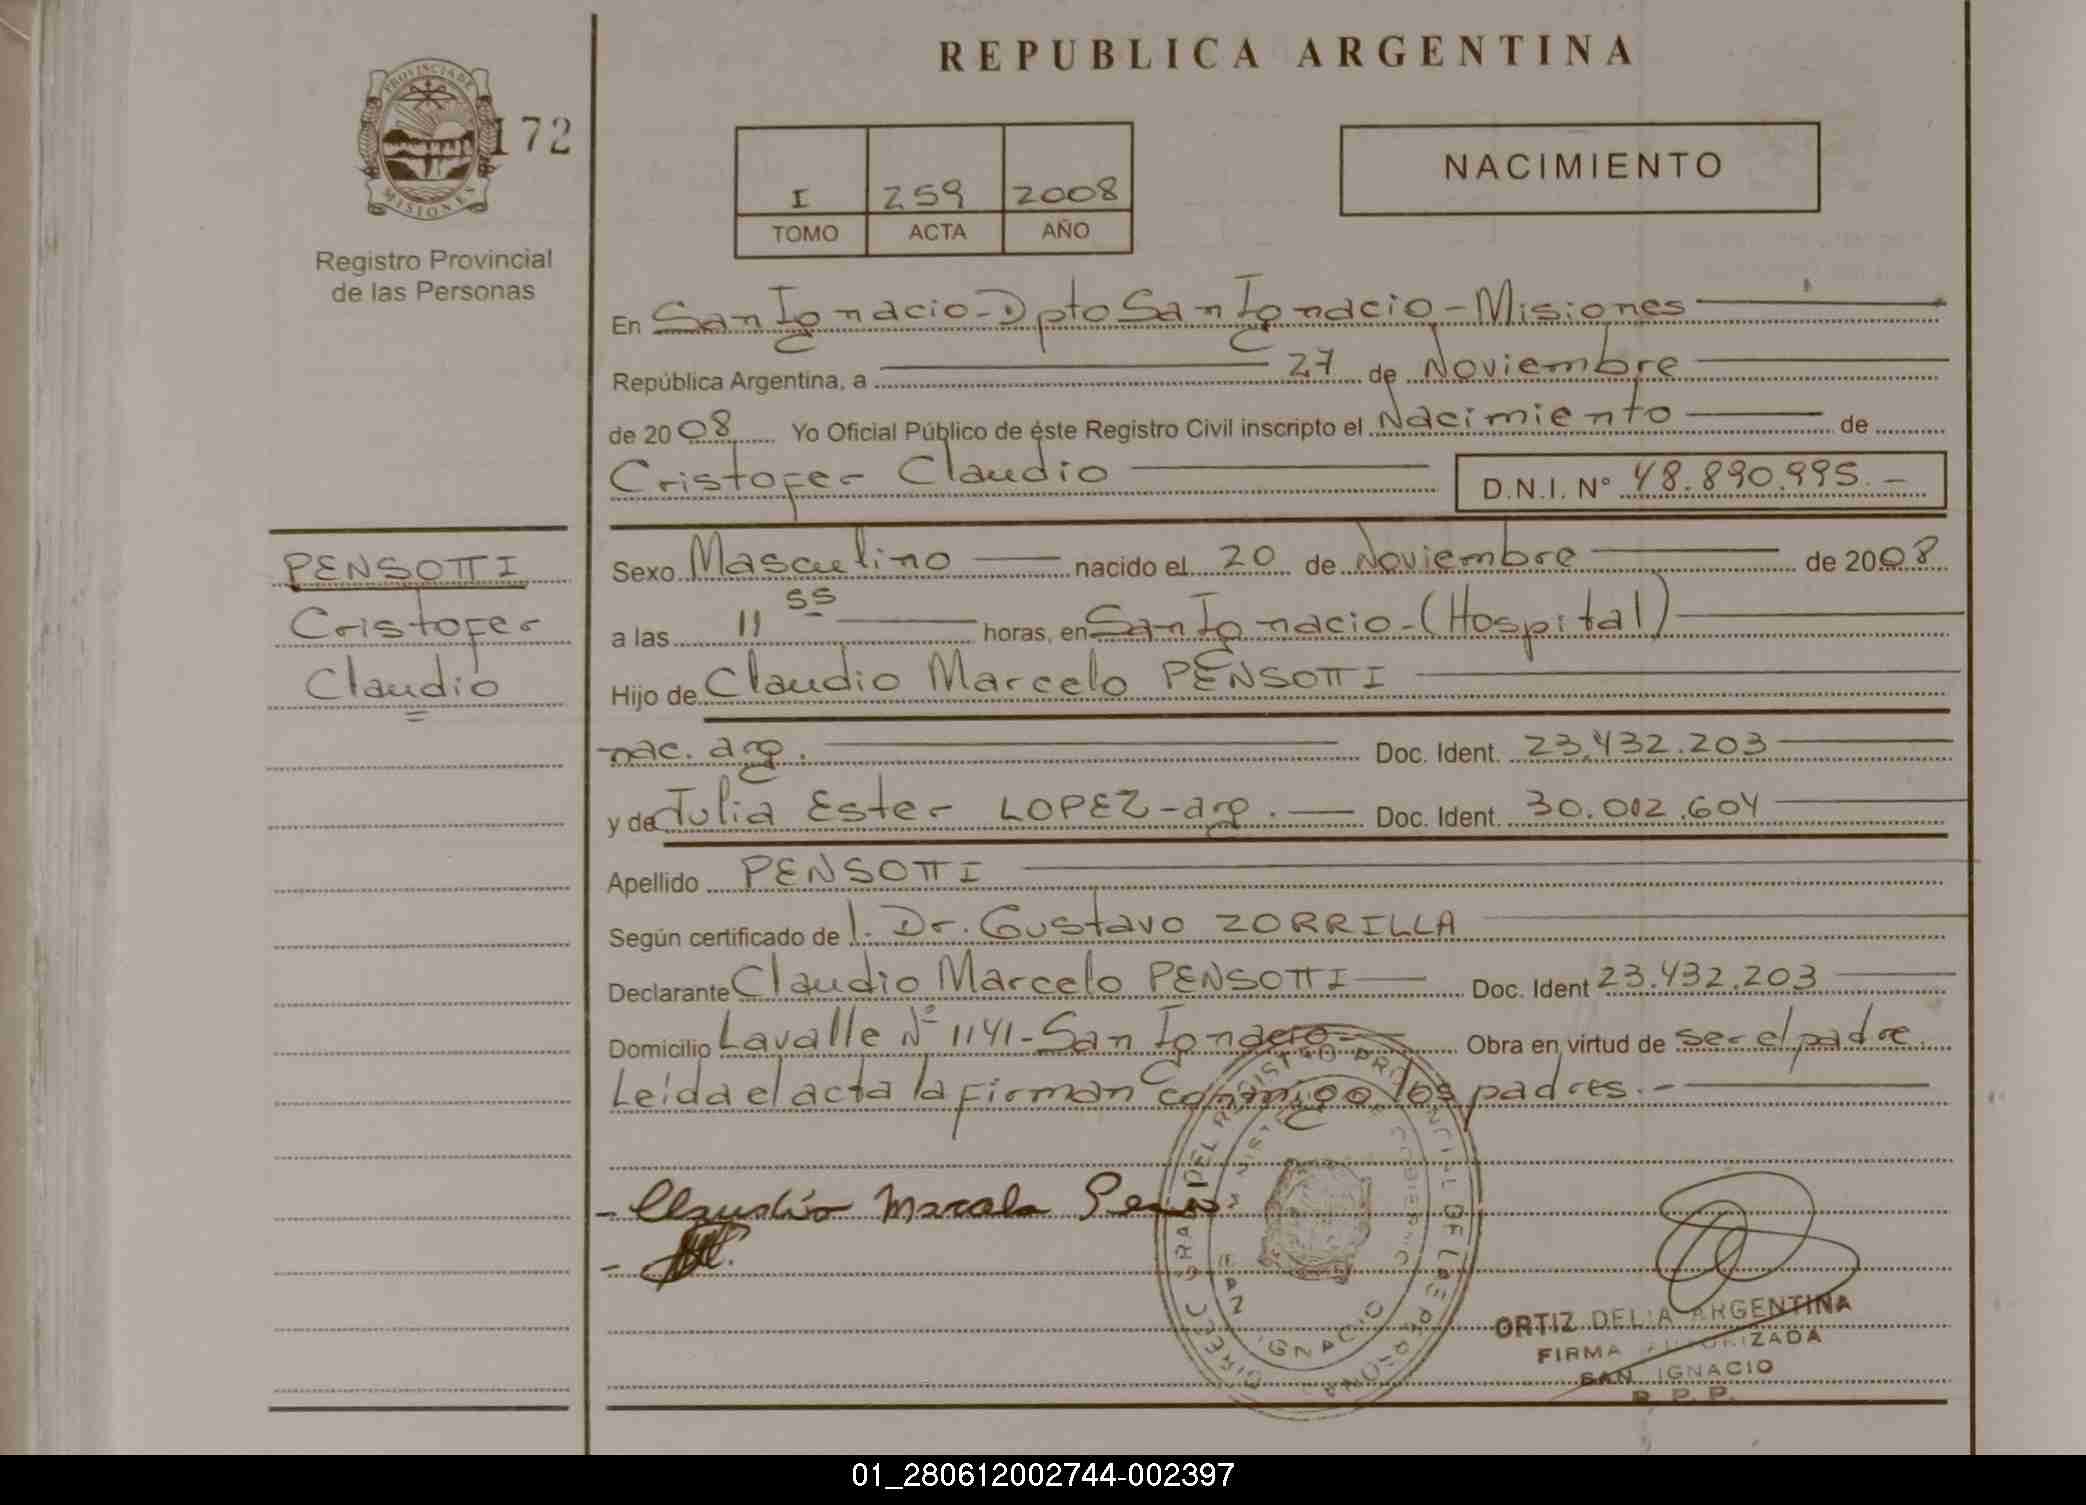 REPUBLICA ARGENTINA
PROVINCIA DE
MISIONES
172
Registro Provincial
de las Personas
I 259 2008
TOMO ACTA AÑO
NACIMIENTO
En San Ignacio - Dpto San Ignacio - Misiones
República Argentina, a 27 de Noviembre
de 2008 Yo Oficial Público de éste Registro Civil inscripto el Nacimiento de
Cristofer Claudio D.N.I. N° 48.890.995.-
PENSOTTI
Cristofer
Claudio
Sexo Masculino nacido el 20 de Noviembre de 2008
a las 11 55 horas, en San Ignacio - (Hospital)
Hijo de Claudio Marcelo PENSOTTI
nac. arg. Doc. Ident. 23.432.203
y de Julia Ester LOPEZ - arg. Doc. Ident. 30.002.604
Apellido PENSOTTI
Según certificado de l. Dr. Gustavo ZORRILLA
Declarante Claudio Marcelo PENSOTTI Doc. Ident 23.432.203
Domicilio Lavalle N° 1141 - San Ignacio Obra en virtud de ser el padre
Leída el acta la firman conmigo los padres.-
- Claudio Marcelo
SAN IGNACIO
ORTIZ DELIA ARGENTINA
FIRMA AUTORIZADA
SAN IGNACIO
R. P. P.
01_280612002744-002397